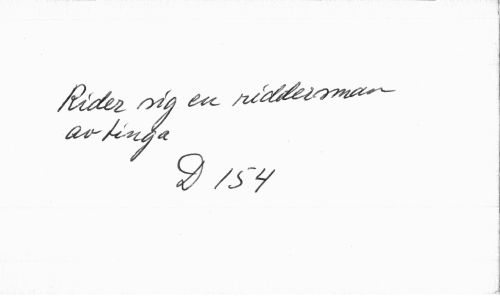 Rider sig en riddersman
av tinga
D 154